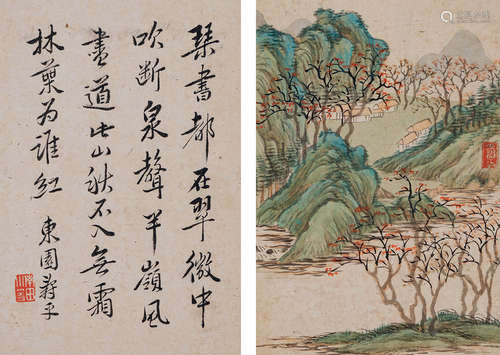 琴書都在翠微中
吹斷泉聲半嶺風
盡道此山秋不入無霜
林葉為誰紅 東園壽平